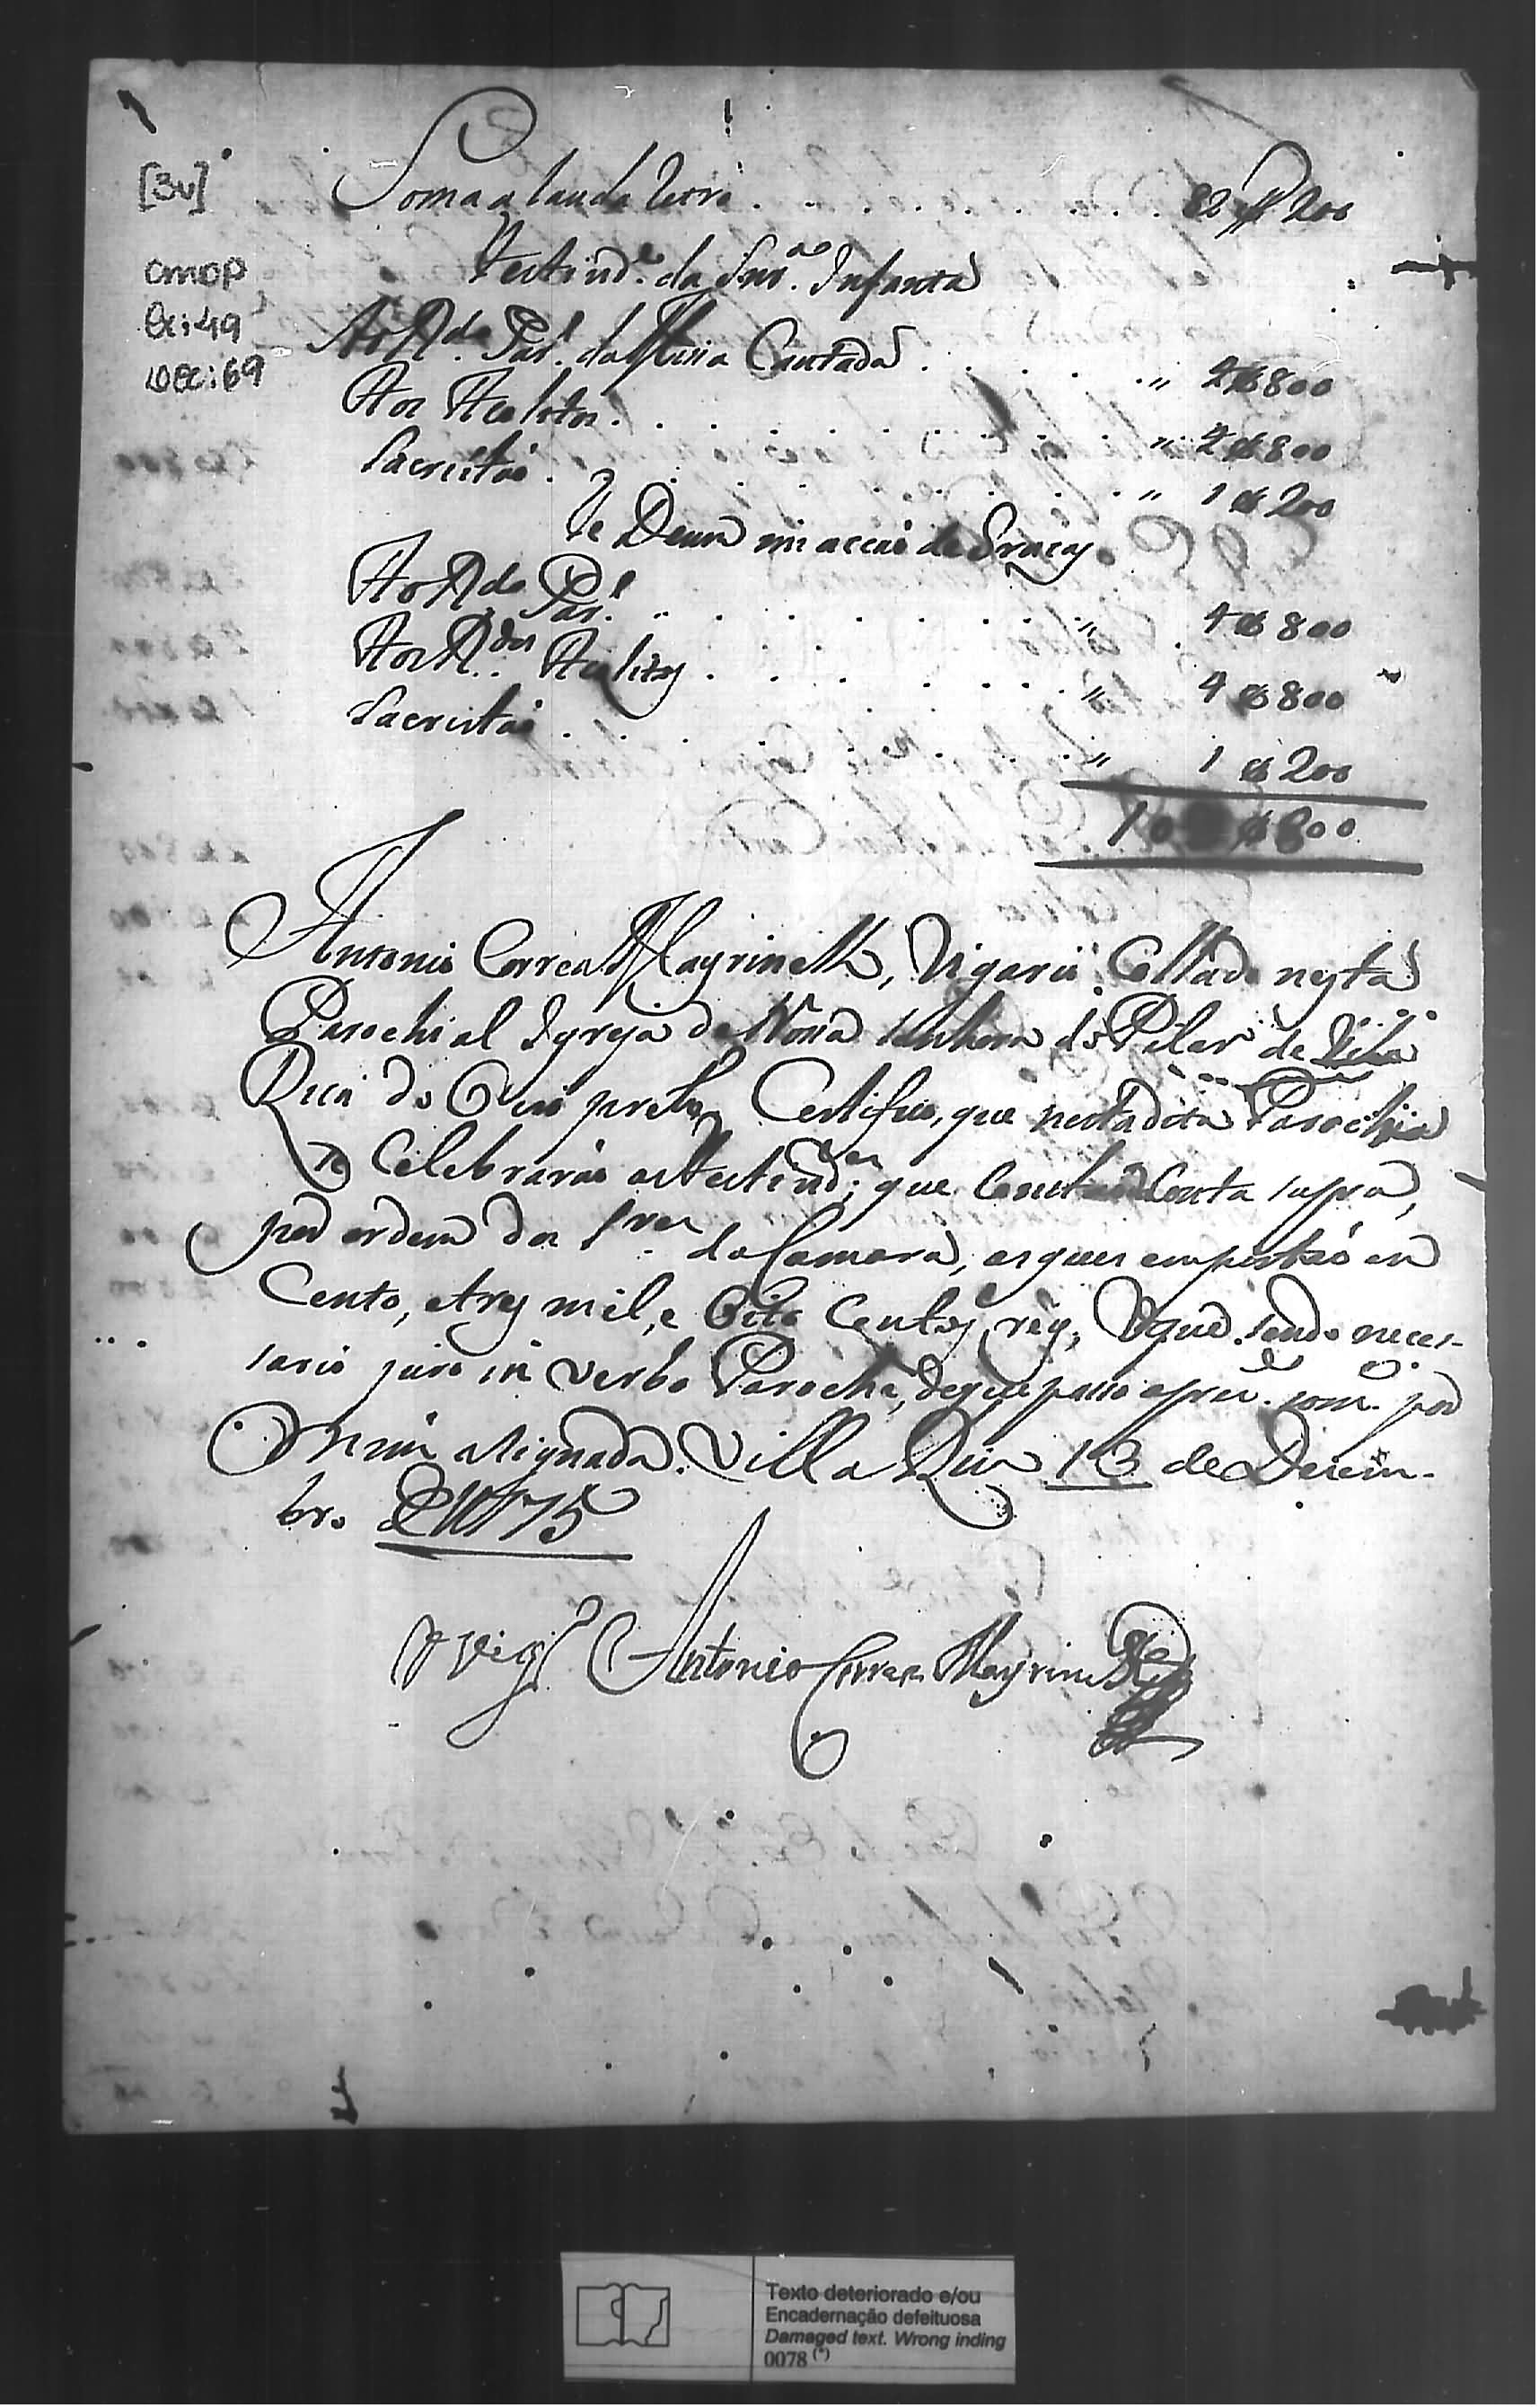 [3v]
CMOP
Cx: 49
DOC: 69
Soma a lauda retro . . . . . . . . 82$200
Festivid.e da Snr.a Infanta
Ao R.do Par.l da Missa Cantada . . . . . . " 4$800
Aos Acolitos . . . . . . . . . " 4$800
Sacristaõ . . . . . . . . . " 1$200
Te Deum em accaõ de Graças
Ao R.do Par.l . . . . . . . . " 4$800
Aos R.dos Acolitos . . . . . . . " 4$800
Sacristaõ . . . . . . . . " 1$200
10 $800
Antonio Correa Mayrinck, Vigario Collado nesta
Parochial Igreja de Nossa Senhora do Pilar de Villa
Rica do Ouro preto Certifico, que nesta dita Parochia
se Celebraraõ as Festivid.es que Consta da Conta supra,
por ordem dos S.res da Camara, as quaes emportaõ em
Cento, e tres mil, e Oito Centos reis, O que sendo neces-
sario juro in verbo Parochi, de que passo a prez.e som.e por
mim asignada. Villa Rica 13 de Dezem-
bro de 1775
O Vig.ro Antonio Correa Mayrinck
Texto deteriorado e/ou
Encadernação defeituosa
Damaged text. Wrong inding
0078 (*)